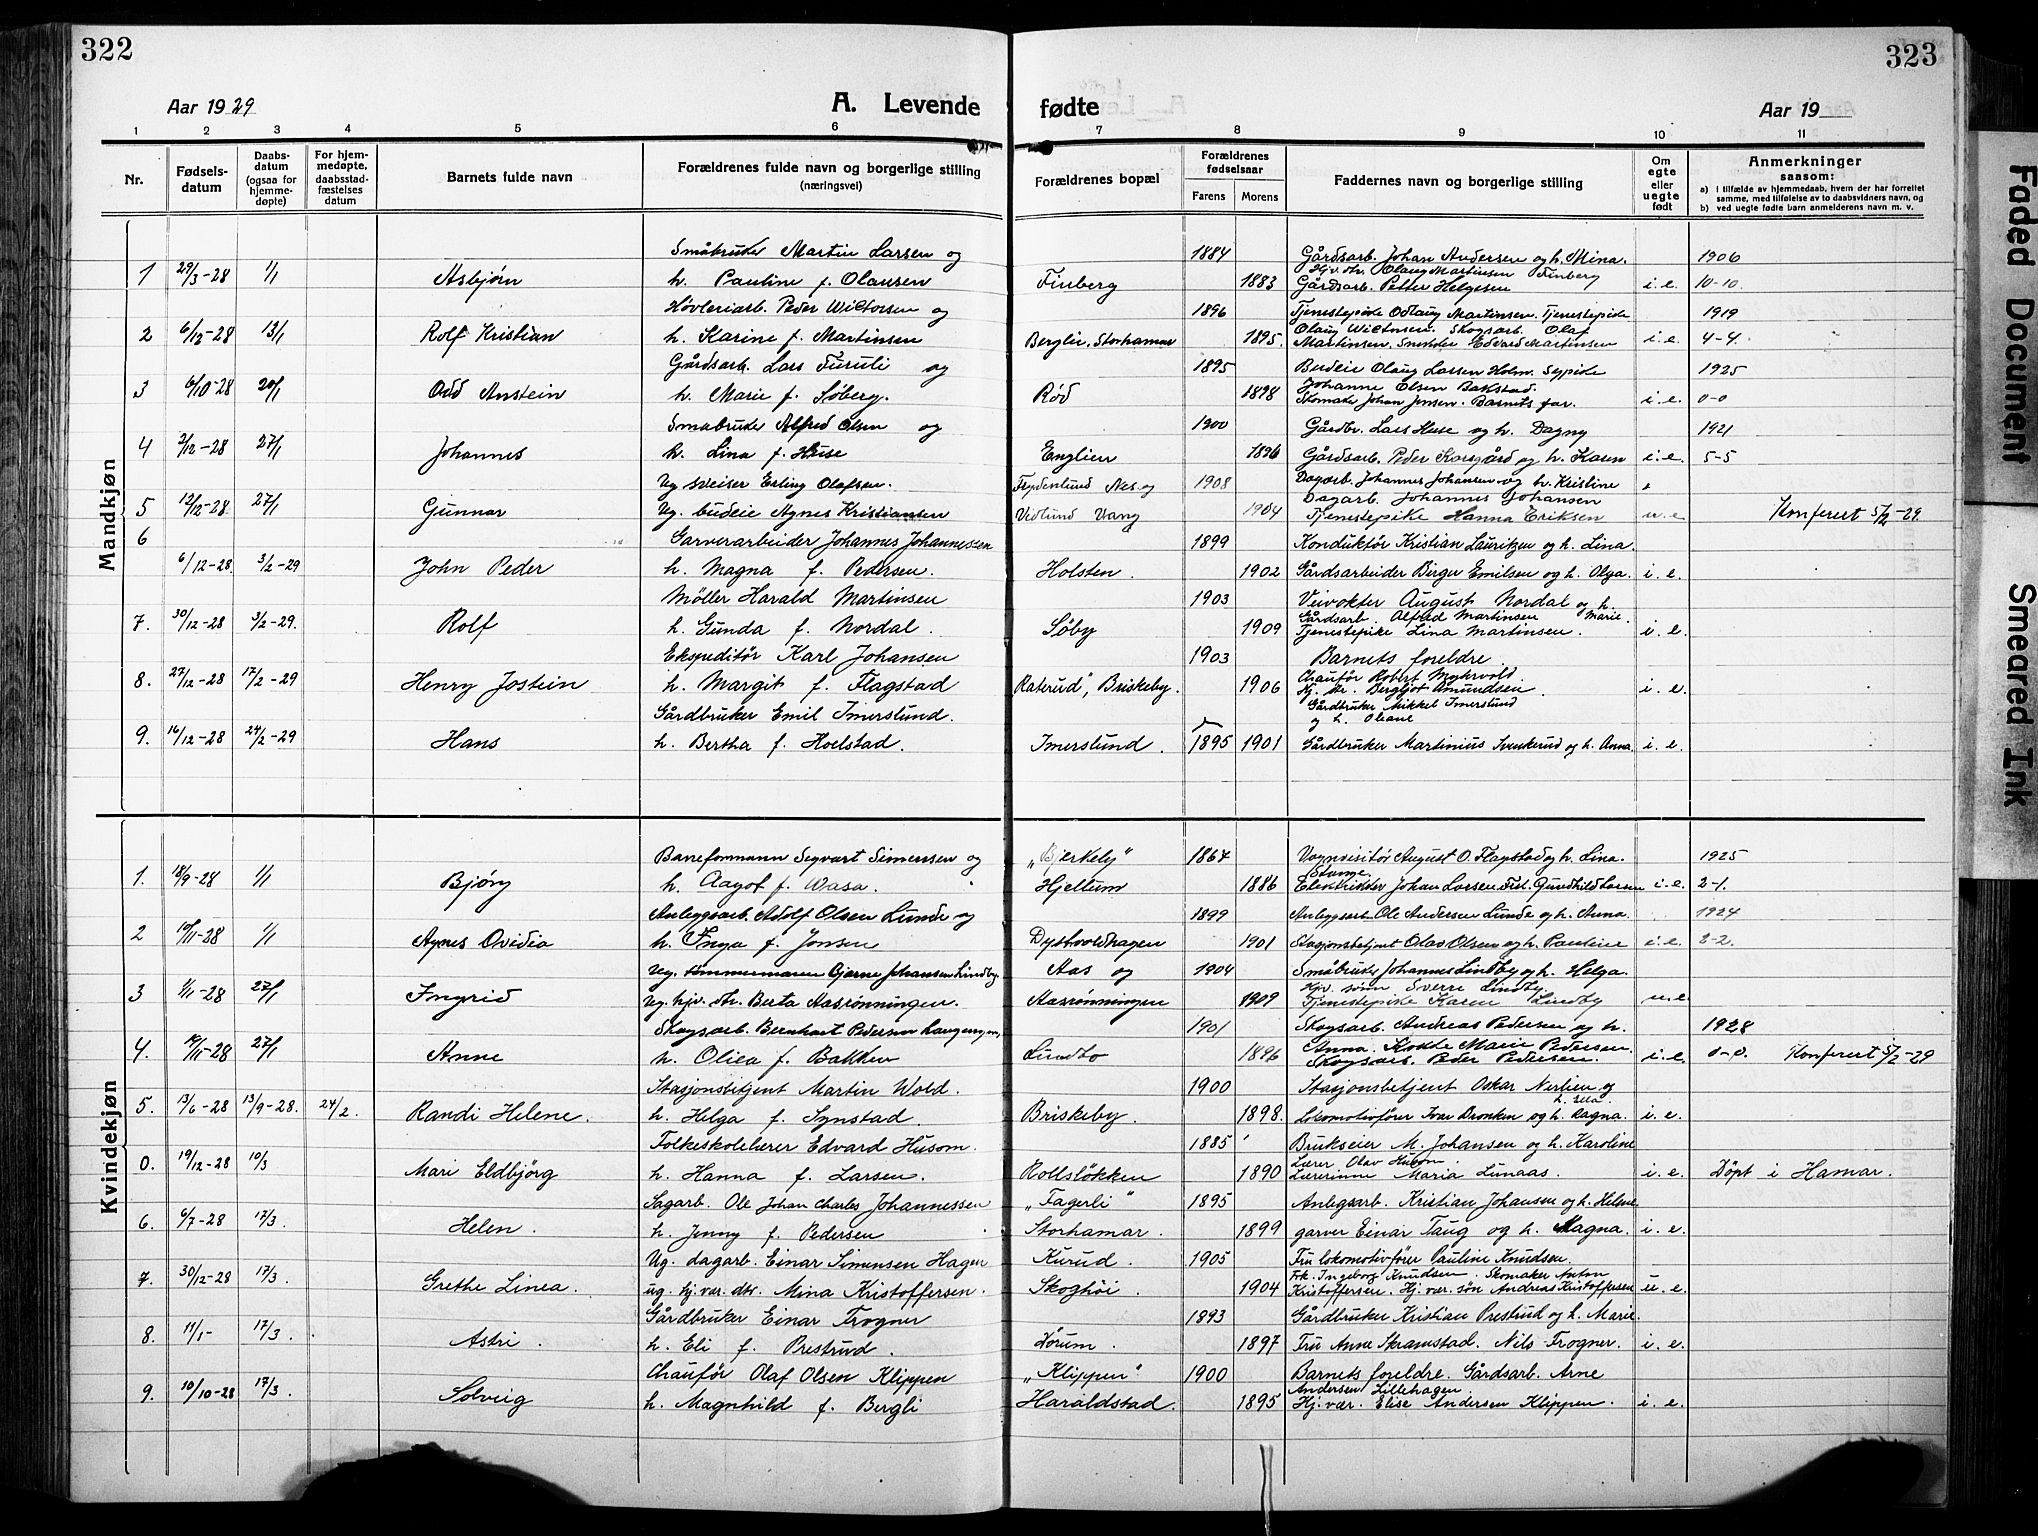 322
Aar 1929
A. Levende
1 2 3 4 5 6
Nr.
Fødsels-
datum
Daabs-
datum
(ogsaa for
hjemme-
døpte)
For hjem-
medøpte,
daabsstad-
fæstelses
datum
Barnets fulde navn
Forældrenes fulde navn og borgerlige stilling
(næringsvei)
Mandkjøn
Småbruker Martin Larsen og
1 29/3-28 1/1 Asbjørn h. Pauline f. Olausen
Høvleriarb. Peder Wictorsen og
2 6/12-28 13/1 Rolf Kristian h. Karine f. Martinsen
Gårdsarb. Lars Furuli og
3 6/10-28 20/1 Odd Anstein h. Marie f. Søberg.
Småbruker Alfred Olsen og
4 2/12-28 27/1 Johannes h. Lina f. Huse
Ug sveiser Erling Olafsen.
5 12/12-28 27/1 Gunnar Ug. budeie Agnes Kristiansen
6 Garverarbeider Johannes Johannessen
6/12-28. 3/2-29 John Peder h. Magna f. Pedersen.
Møller Harald Martinsen
7. 30/12-28 3/2-29. Rolf h. Gunda f. Nordal.
Ekspeditør Karl Johansen
8. 27/12-28 17/2-29 Henry Jostein h. Margit f. Flagstad
Gårdbruker Emil Imerslund.
9. 16/12-28 24/2-29 Hans h. Bertha f. Hoelstad.
Kvindekjøn
Baneformann Segvart Simensen og
1. 18/9-28 1/1 Bjørg h. Aagot f. Wasa.
Anleggsarb. Adolf Olsen Lunde og
2 10/11-28 1/1 Agnes Ovidia h. Inga f. Jonsen
Ug. tømmermann Bjarne Johansen Lindby.
3 1/11-28 27/1 Ingrid Ug. hjv. dtr. Berta Aasrønningen.
Skogsarb. Bernhart Pedersen
4. 27/1 Anne h. Oliea f. Bakken
Stasjonsbetjent Martin Wold.
5. 13/6-28 13/9-28. 24/2. Randi Helene. h. Helga f. Synstad.
Folkeskolelærer Edvard Husom.
0. 19/12-28 10/3 Mari Eldbjörg h. Hanna f. Larsen.
Sagarb. Ole Johan Charles Johannessen
6. 6/7-28 17/3. Helen. h. Jenny f. Pedersen
Ug. dagarb. Einar Simensen Hagen
7. 30/12-28 17/3. Grethe Linea. ug. hj. vær. dtr. Mina Kristoffersen.
Gårdbruker Einar Frogner
8. 11/1- 17/3. Astri. h. Eli f. Prestrud.
Chauför Olaf Olsen Klippen
9. 10/10-28 17/3. Solveig h. Magnhild f. Bergli
323
fødte
Aar 19
7 8 9 10 11
Forældrenes bopæl
Forældrenes
fødselsaar
Farens Morens
Faddernes navn og borgerlige stilling
Om
egte
eller
uegte
født
Anmerkninger
saasom:
a) i tilfælde av hjemmedaab, hvem der har forrettet
samme, med tilføielse av to daabsvidners navn, og
b) ved uegte fødte barn anmelderens navn m. v.
1884 Gårdsarb. Johan Andersen og h. Mina. 1906
Hjv. dtr. Olaug Martinsen Finberg
Finberg 1883 Gårdsarb. Petter Helgesen i. e. 10-10.
1896 Tjenestepike Odlaug Martinsen. Tjenestepike 1919
Olaug Wictorsen. Skogsarb. Olaf
Berglie, Storhamar 1895. Martinsen. Snekker Edvard Martinsen i. e. 4-4.
1895 Budeie Olaug Larsen Holm. Sypike 1925
Johanne Olsen Bakstad.
Rød 1898 Skomaker Johan Jensen. Barnets far. i. e. 0-0
1900 Gårdbr. Lars Huse og h. Dagny 1921
Englien 1896 Gårdsarb. Peder Korsgård og h. Karen i. e. 5-5
Frydenlund Nes og 1908 Dagarb. Johannes Johansen og h. Kristine
Dagarb. Johannes Johansen
Vidlund Vang 1904 Tjenestepike Hanna Eriksen u. e Konferert 5/2-29.
1899 Konduktør Kristian Lauritzen og h. Lina.
Holsten. 1902 Gårdsarbeider Birger Emilsen og h. Olga. i. e.
1903 Veivokter August Nordal og h.
Gårdsarb. Alfred Martinsen Marie.
Søby 1909 Tjenestepike Lina Martinsen. i. e.
1903 Barnets foreldre
Chauför Robert Myhrvold.
Raterud", Briskeby. 1906 Hj. dtr. Bergljot Amundsen. i. e.
Gårdbruker Mikkel Imerslund
og h. Oleane
Imerslund. 1895 1901 Gårdbruker Martinius Svenkerud og h. Anna. i. e.
„Bjerkely" 1867 Vognvisitør August O. Flagstad og h. Lina. 1925
Stange.
Hjellum 1886 Elektriker Johan Larsen Frk. Gundhild Larsen i. e. 2-1.
1899 Anleggsarb. Ole Andersen Lunde og h. Anna. 1924
Dystvoldhagen 1901 Stasjonsbetjent Olav Olsen og h. Pauline i. e. 2-2.
Aas og 1904 Småbruker Johannes Lindby og h. Helga.
Hjv. sønn Sverre Lindby.
Aasrønningen 1909 Tjenestepike Karen Lindby u. e.
1901 Skogsarb. Andreas Pedersen og h. 1928
Anna. Kokke Marie Pedersen.
Lundbo 1896 Skogsarb. Peder Pedersen. i. e. 0-0. Konferert 5/2-29
1900 Stasjonsbetjent Oskar Nerlien og
h. Ella.
Briskeby. 1898. Lokomotivfører Ivar Bronken og h. Ragna. i. e.
1885 Brukseier M. Johansen og h. Karoline
Lærer Olav Husom.
Rollsløkken 1890 Lærerinne Maria Lunaas. i. e. Döpt i Hamar.
„Fagerli" 1895 Anlegsarb. Kristian Johansen og h. Helene
Storhamar. 1899 garver Einar Taug og h. Magna. i. e.
Kurud. 1905 Fru lokomotivfører Pauline Knudsen.
Frk. Ingeborg Knudsen. Skomaker Anton
Skoghöi. 1904 Kristoffersen. Hj. vær. søn Andreas Kristoffersen u. e.
1893 Gårdbruker Kristian Prestrud og h. Marie.
Lörum. 1897 Fru Anne Skramstad. Nils Frogner. i. e.
„Klippen" 1900 Barnets foreldre. Gårdsarb. Arne
Andersen Lillehagen.
Haraldstad. 1895 Hj. vær. Elise Andersen Klippen. i. e.
Faded Document
Smeared Ink